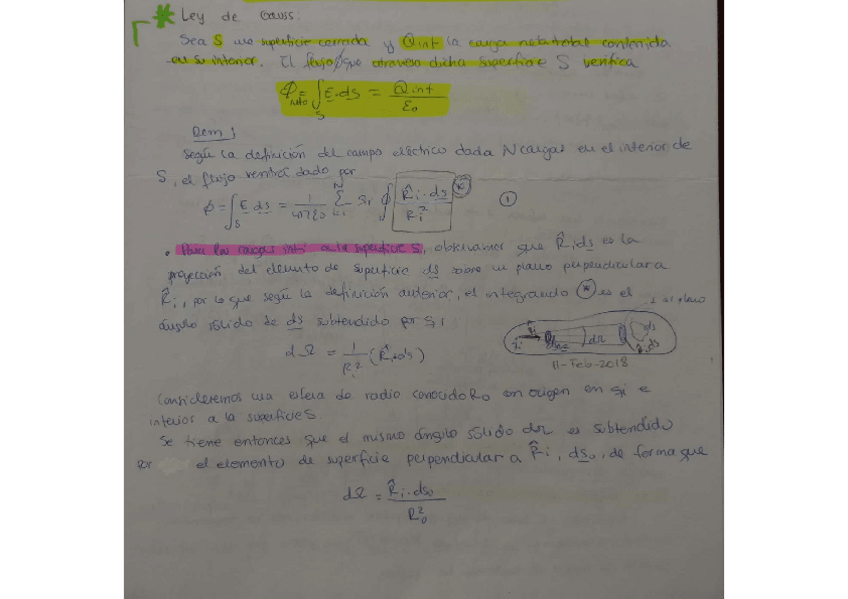 * Ley de Gauss.
Sea S una superficie cerrada y Qint la carga neta total contenida
en su interior. El flujo ϕ que atraviesa dicha superficie S verifica
ϕneto = ∫S E · ds = Qint / ε0
Dem:
Según la definición del campo eléctrico dada N cargas en el interior de
S, el flujo vendrá dado por
ϕ = ∫S E ds = 1/4πε0 Σ i=1 N qi ∮ R̂i · ds / Ri² (*) ①
• Para las cargas int. a la superficie S, observamos que R̂i ds es la
proyección del elemento de superficie ds sobre un plano perpendicular a
R̂i, por lo que según la definición anterior, el integrando (*) es el
ángulo sólido de ds subtendido por qi
⊥ al plano
dΩ
ds
R̂i ds
11-Feb-2018
dΩ = 1/Ri² (R̂i · ds)
Consideremos una esfera de radio conocido R0 con origen en qi e
interior a la superficie S.
Se tiene entonces que el mismo ángulo sólido dΩ es subtendido
por el elemento de superficie perpendicular a R̂i, ds0, de forma que
dΩ = R̂i · ds0 / R0²